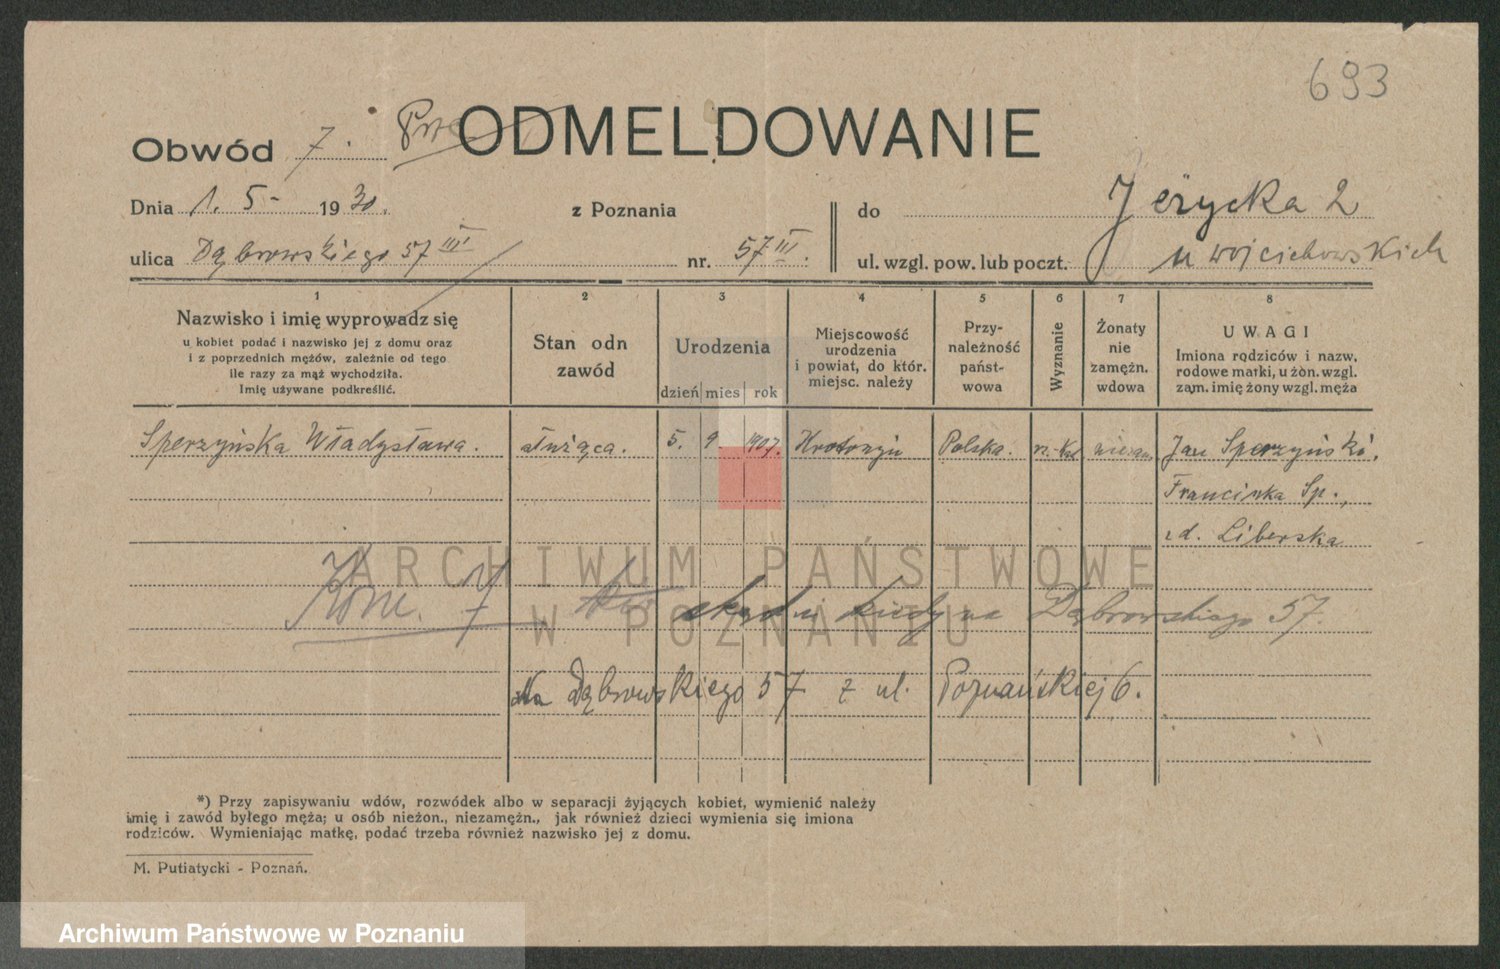 693
Obwód 7. ODMELDOWANIE
Dnia 1. 5 - 1930. z Poznania do Jeżycka 2
ulica Dąbrowskiego 57 III nr. 57 III. ul. wzgl. pow. lub poczt. u Wojciechowskich
1 2 3 4 5 6 7 8
Nazwisko i imię wyprowadz się
u kobiet podać i nazwisko jej z domu oraz
i z poprzednich mężów, zależnie od tego
ile razy za mąż wychodziła.
Imię używane podkreślić.
Stan odn
zawód
Urodzenia
dzień mies rok
Miejscowość
urodzenia
i powiat, do któr.
miejsc. należy
Przy-
należność
państ-
wowa
Wyznanie
Żonaty
nie
zamężn.
wdowa
UWAGI
Imiona rodziców i nazw.
rodowe matki, u żon. wzgl.
zam. imię żony wzgl. męża
Sperzyńska Władysława. służąca. 5. 9. 1907. Krotoszyn Polska. rz.-kat niezam. Jan Sperzyński,
Franciszka Sp.,
z d. Liberska
ARCHIWUM PAŃSTWOWE
W POZNANIU
Kom. 7 skąd i kiedy na Dąbrowskiego 57.
Na Dąbrowskiego 57 z ul. Poznańskiej 6.
*) Przy zapisywaniu wdów, rozwódek albo w separacji żyjących kobiet, wymienić należy
imię i zawód byłego męża; u osób nieżon., niezamężn., jak również dzieci wymienia się imiona
rodziców. Wymieniając matkę, podać trzeba również nazwisko jej z domu.
M. Putiatycki - Poznań.
Archiwum Państwowe w Poznaniu